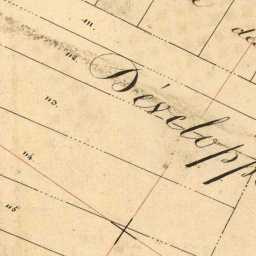 111.
112.
Développ
113.
114
115